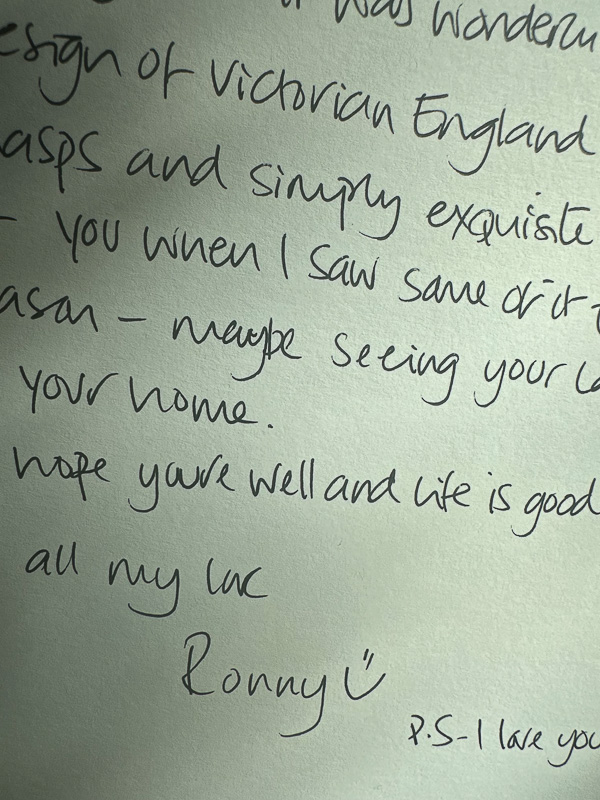 it was wonderfu
esign of Victorian England
asps and simply exquisite
- you when I saw some of it
ason - maybe seeing your
your home.
hope you're well and life is good
all my love
Ronny
P.S-I love you